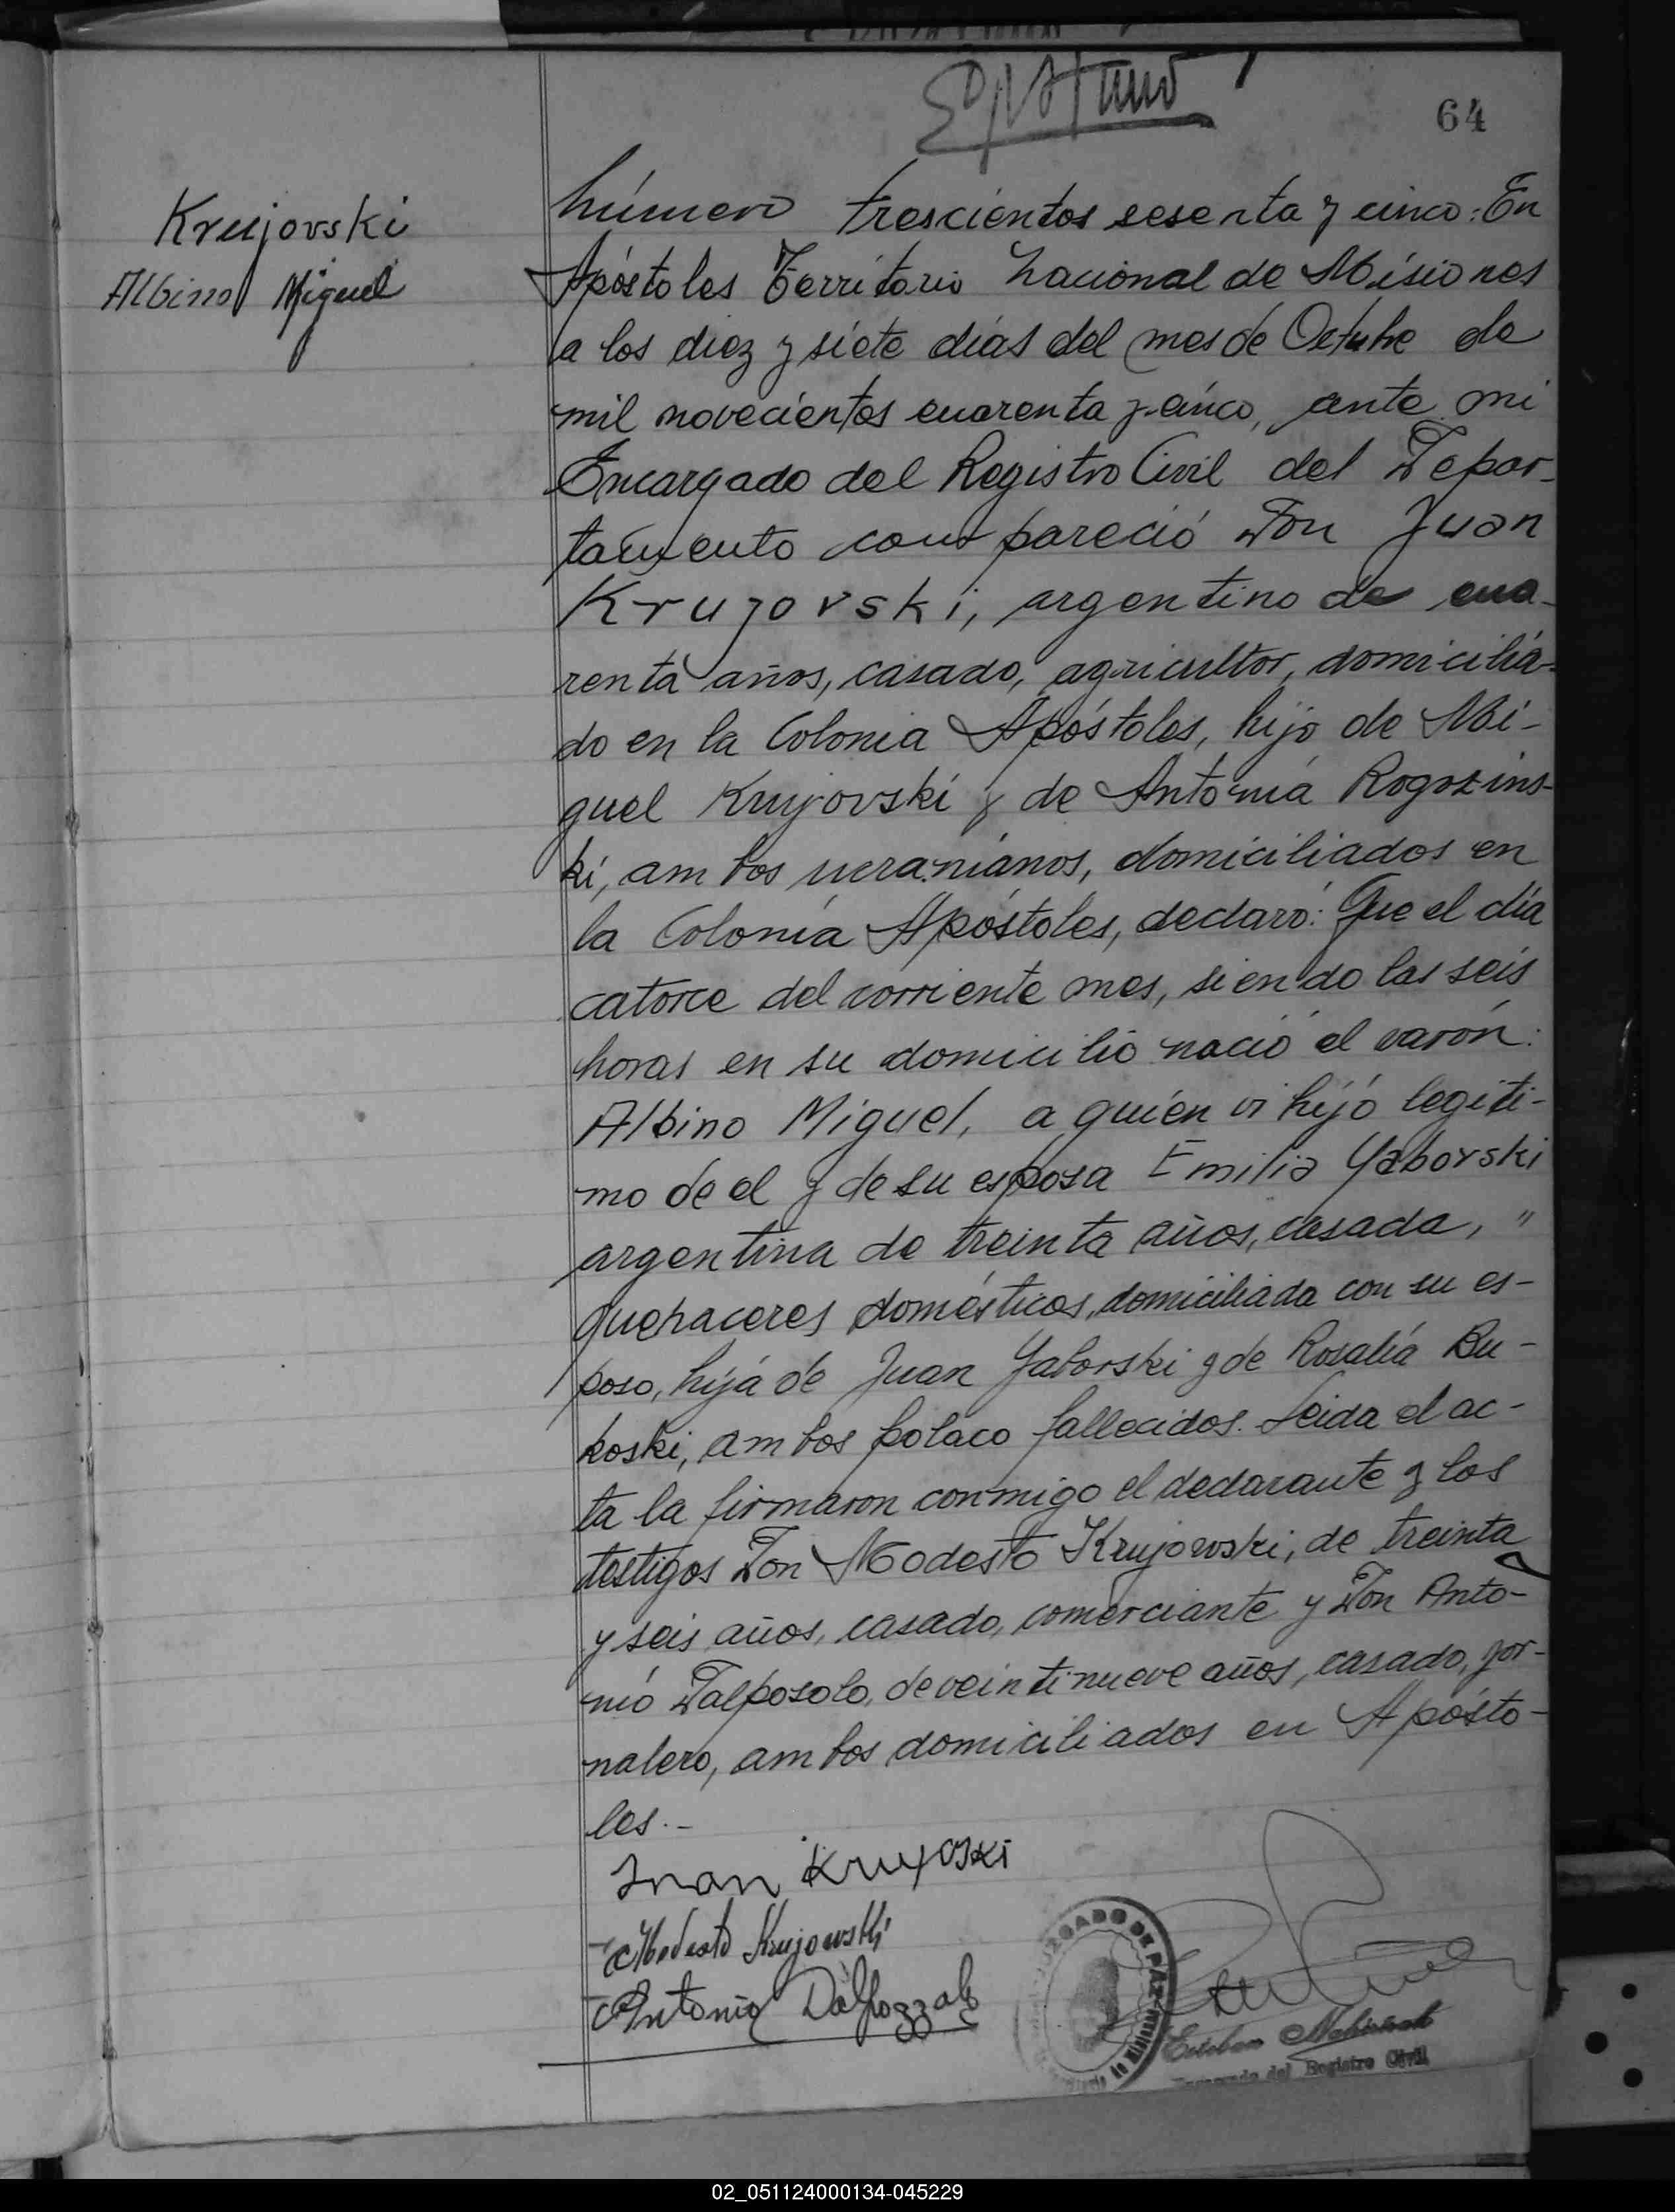 64
Krujovski
Albino Miguel
Número trescientos sesenta y cinco: En
Apóstoles Territorio Nacional de Misiones
a los diez y siete días del mes de Octubre de
mil novecientos cuarenta y cinco, ante mi
Encargado del Registro Civil del Depar-
tamento compareció Don Juan
Krujovski, argentino de cua-
renta años, casado, agricultor, domicilia-
do en la Colonia Apóstoles, hijo de Mi-
guel Krujovski y de Antonia Rogozins-
ki, ambos ucranianos, domiciliados en
la Colonia Apóstoles, declaró: Que el día
catorce del corriente mes, siendo las seis
horas en su domicilio nació el varón:
Albino Miguel, a quien vi hijo legiti-
mo de el y de su esposa Emilia Yaborski
argentina de treinta años, casada, "
quehaceres domésticos, domiciliada con su es-
poso, hija de Juan Yaborski y de Rosalía Bu-
koski, ambos polaco fallecidos. Leida el ac-
ta la firmaron conmigo el declarante y los
testigos Don Modesto Krujowski, de treinta
y seis años, casado, comerciante y Don Anto-
nio Dalposolo, de veintinueve años, casado, jor-
nalero, ambos domiciliados en Apósto-
les.-
Juan Krujoski
Modesto Krujowski
Antonio Dalpozzolo
JUZGADO DE PAZ
Esteban
Encargado del Registro Civil
02_051124000134-045229